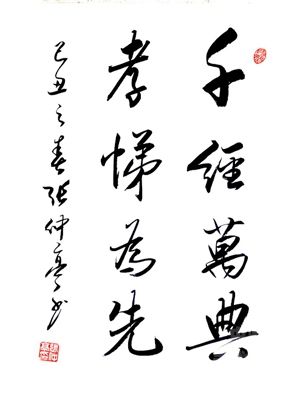 千經萬典
孝悌為先
己丑之春張仲亭书